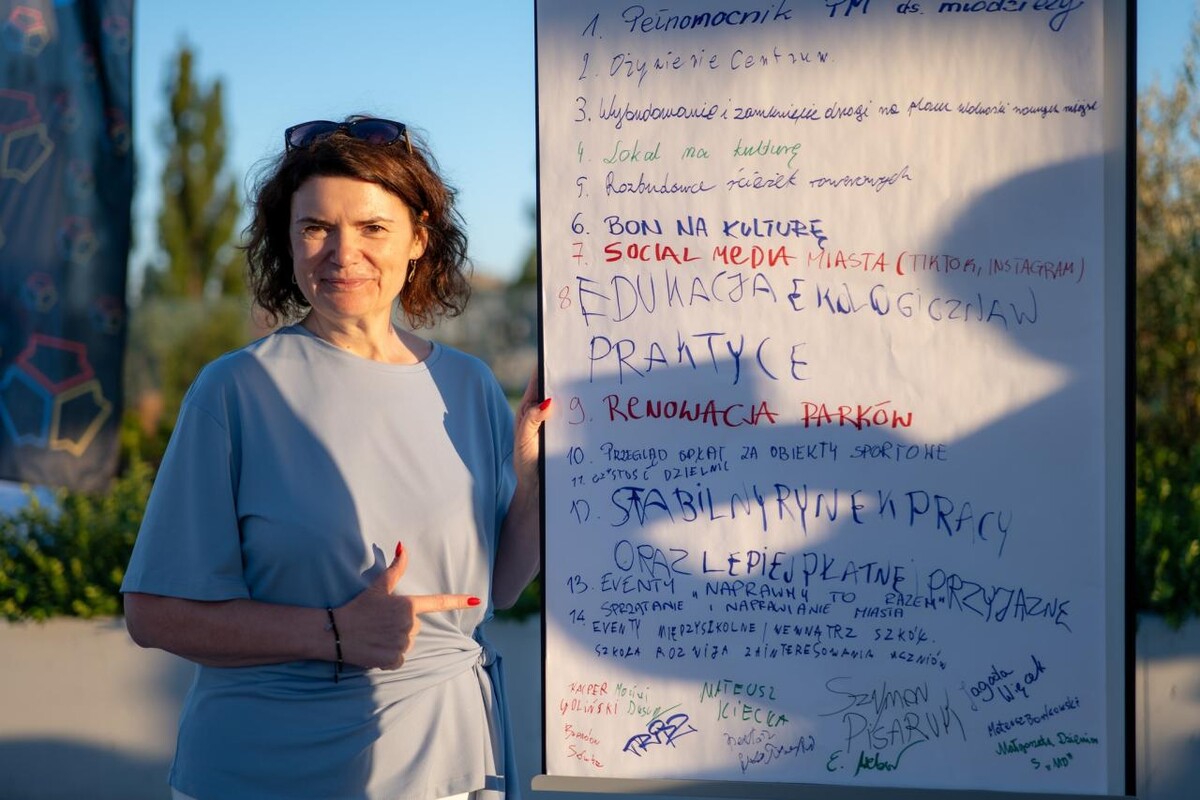 1. Pełnomocnik PM ds. młodzieży
2. Ożywienie Centrum.
3. Wybudowanie i zamknięcie drogi na placu wolności
4. Lokal na kulturę
5. Rozbudowa ścieżek rowerowych
6. BON NA KULTURĘ
7. SOCIAL MEDIA MIASTA (TIKTOK, INSTAGRAM)
8 EDUKACJA EKOLOGICZNA W
PRAKTYCE
9. RENOWACJA PARKÓW
10. PRZEGLĄD OPŁAT ZA OBIEKTY SPORTOWE
11. CZYSTOŚĆ DZIELNIC
12. STABILNY RYNEK PRACY
ORAZ LEPIEJ PŁATNE, PRZYJAZNE
13. EVENTY „NAPRAWMY TO RAZEM"
SPRZĄTANIE I NAPRAWIANIE MIASTA
14. EVENTY MIĘDZYSZKOLNE / WEWNĄTRZ SZKÓŁ.
SZKOŁA ROZWIJA ZAINTERESOWANIA UCZNIÓW
KACPER
GOLIŃSKI
MATEUSZ
KIECKA
SZYMON
PISARUK
Jagoda
Więcek
Mateusz Bartkowski
Małgorzata
S „MD"